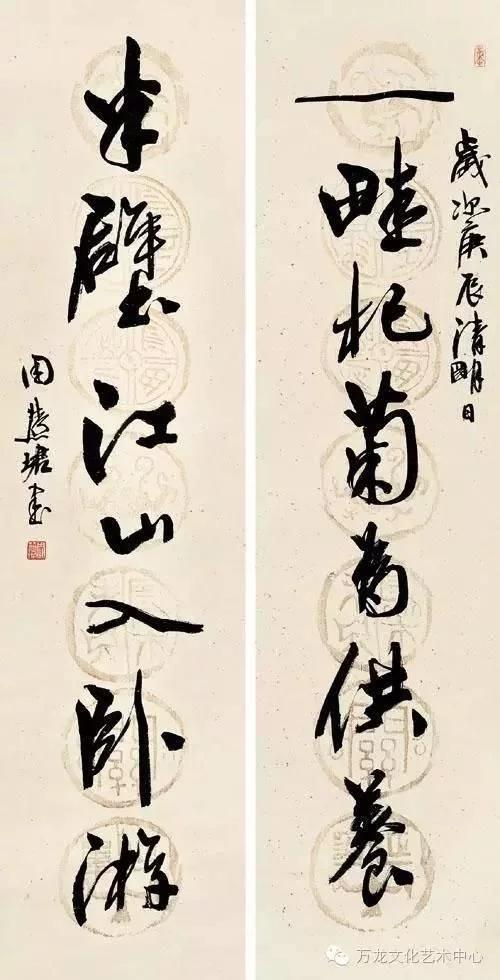 歲次庚辰清明日
一畦杞菊為供養
半壁江山入卧游
周慧珺书
万龙文化艺术中心